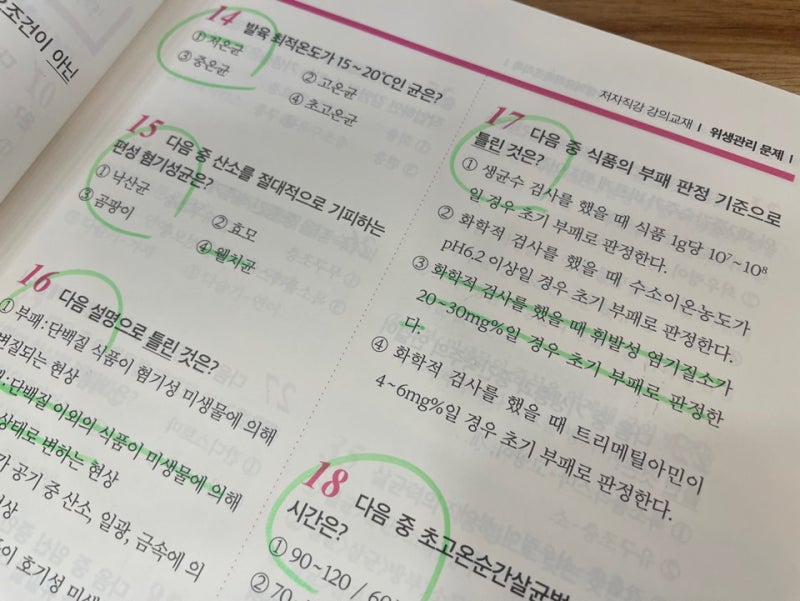 요조건이 아닌
저자직강 강의교재 | 위생관리 문제 |
14 발육 최적온도가 15~20℃인 균은?
① 저온균
② 고온균
③ 중온균
④ 초고온균
15 다음 중 산소를 절대적으로 기피하는
편성 혐기성균은?
① 낙산균
② 효모
③ 곰팡이
④ 웰치균
16 다음 설명으로 틀린 것은?
① 부패:단백질 식품이 혐기성 미생물에 의해
변질되는 현상
:단백질 이외의 식품이 미생물에 의해
상태로 변하는 현상
가 공기 중 산소, 일광, 금속에 의
현상
이 호기성 미생
17 다음 중 식품의 부패 판정 기준으로
틀린 것은?
① 생균수 검사를 했을 때 식품 1g당 10⁷~10⁸
일 경우 초기 부패로 판정한다.
② 화학적 검사를 했을 때 수소이온농도가
pH6.2 이상일 경우 초기 부패로 판정한다.
③ 화학적 검사를 했을 때 휘발성 염기질소가
20~30mg%일 경우 초기 부패로 판정한
다.
④ 화학적 검사를 했을 때 트리메틸아민이
4~6mg%일 경우 초기 부패로 판정한다.
18 다음 중 초고온순간살균법
시간은?
① 90~120 / 60
② 70